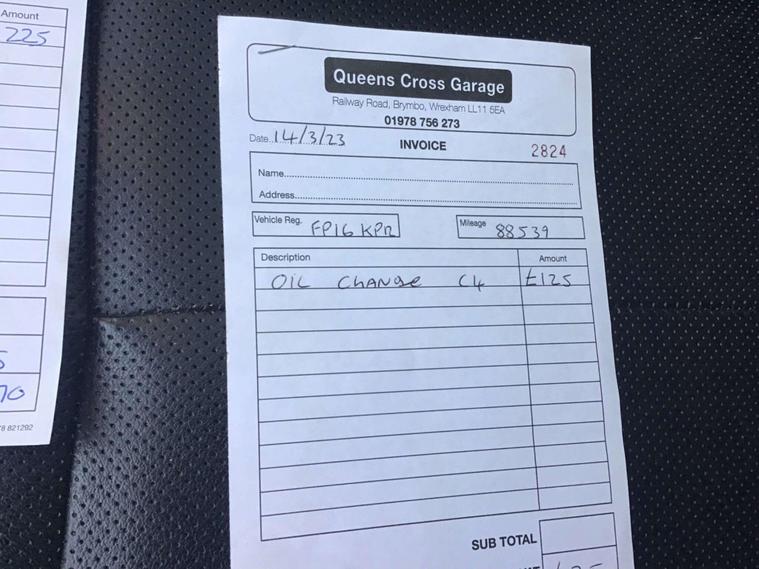 Amount
225
70
Queens Cross Garage
Railway Road, Brymbo, Wrexham LL11 5EA
01978 756 273
Date 14/3/23
INVOICE
2824
Name
Address
Vehicle Reg. FP16 KPR
Mileage 88539
Description Amount
OIL CHANGE C4 £125
SUB TOTAL